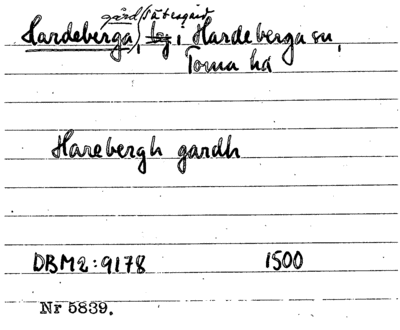 gård (Sätesgård
Hardeberga), lg i Hardeberga sn,
Torna hd
Harebergh gardh
DBM2:9178 1500
Nr 5839.